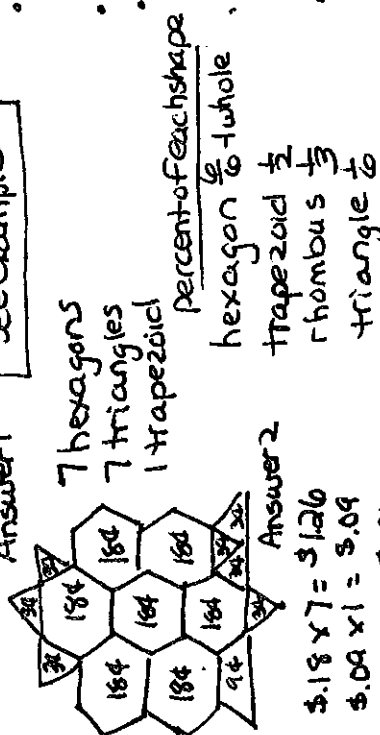 See example
Answer 1
7 hexagons
7 triangles
1 trapezoid
percent of each shape
hexagon 6/6 1 whole
trapezoid 1/2
rhombus 1/3
triangle 1/6
3¢
3¢ 3¢
18¢
18¢ 18¢
18¢
18¢ 18¢
18¢
9¢ 3¢ 3¢ 3¢
3¢
Answer 2
$.18 x 7 = $1.26
$.09 x 1 = $.09